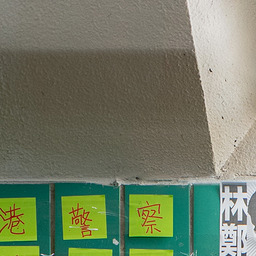 港警察
林鄭